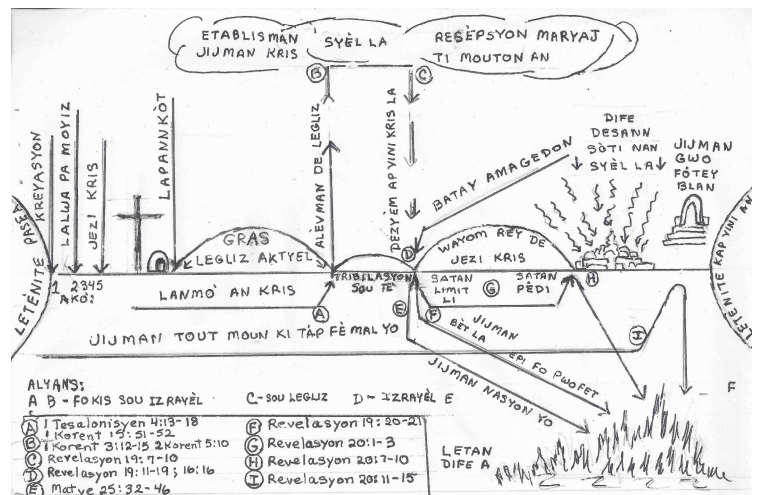 ETABLISMAN
JIJMAN KRIS
SYÈL LA
RESÈPSYON MARYAJ
TI MOUTON AN
B
C
LETÈNITE PASE A
KREYASYON
LALWA PA MOYIZ
JEZI KRIS
LAPANNKÒT
ALEVMAN DE LEGLIZ
DEZYÈM AP VINI KRIS LA
BATAY AMAGEDON
DIFE
DESANN
SÒTI NAN
SYÈL LA
JIJMAN
GWO
FÒTEY
BLAN
LETÈNITE KAP VINI AN
GRAS
LEGLIZ AKTYEL
WAYOM REY DE
JEZI KRIS
D
1 2345
AKÒ:
TRIBILASYON
SOU TÈ
SATAN
LIMIT
LI
G
SATAN
PÈDI
H
LANMÒ AN KRIS
A
E
F
JIJMAN TOUT MOUN KI TAP FÈ MAL YO
I
JIJMAN
BÈT LA
EPI FO PWOFET
JIJMAN NASYON YO
F
ALYANS:
A B - FOKIS SOU IZRAYÈL C-SOU LEGLIZ D - IZRAYÈL E
A 1 Tesalonisyen 4:13-18
1 Korent 15:51-52
B 1 Korent 3:12-15 2 Korent 5:10
C Revelasyon 19:7-10
D Revelasyon 19:11-19; 16:16
E Matye 25:32-46
F Revelasyon 19:20-21
G Revelasyon 20:1-3
H Revelasyon 20:7-10
I Revelasyon 20:11-15
LETAN
DIFE A